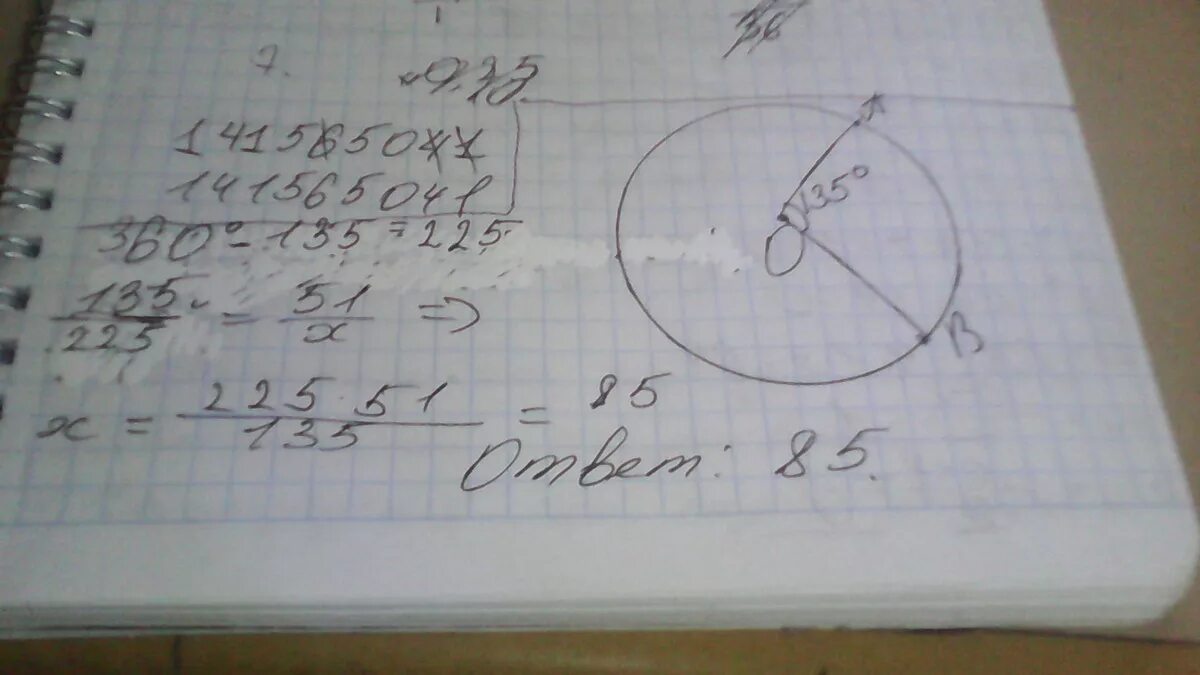 7.
1415650
141565041
360° - 135 = 225.
135/225 = 51/x =>
x = 225 · 51/135 = 85
Ответ: 85.
A
135°
O
B